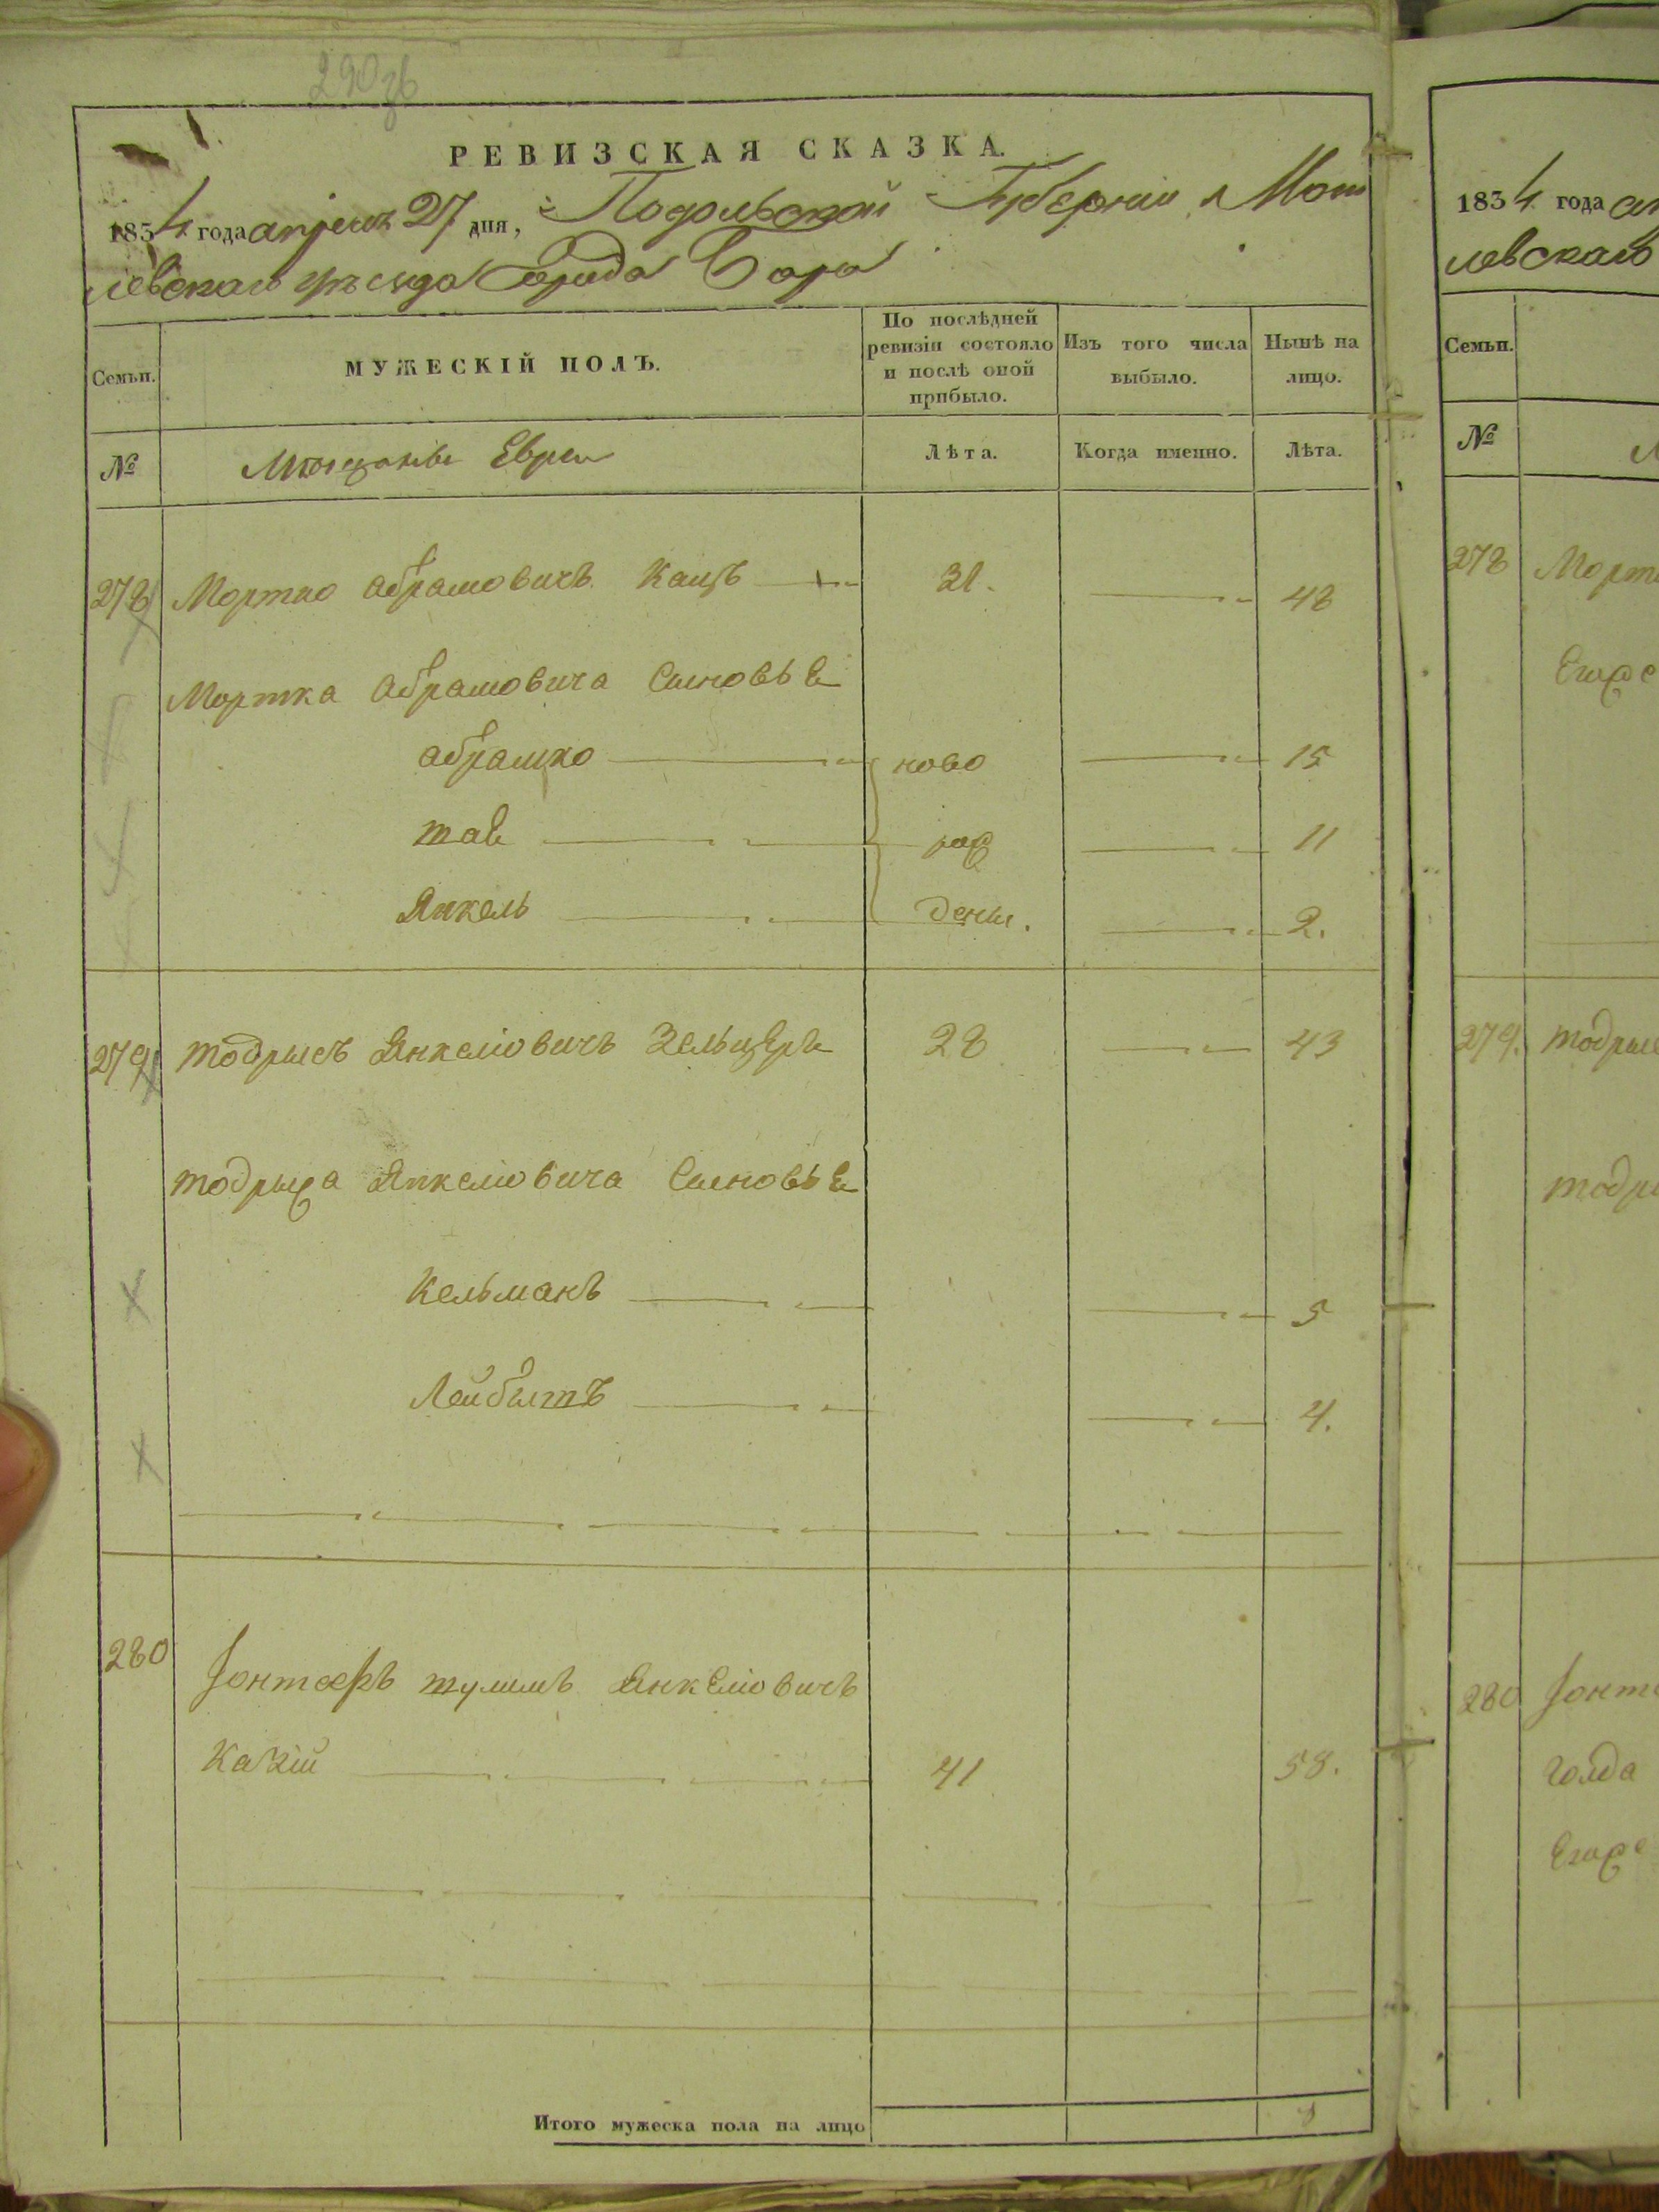 290 зв
РЕВИЗСКАЯ СКАЗКА.
1834 года апреля 27 дня, Подольской Губернии Моги
левскаго уѣзда Города Бара
Семьи.
МУЖЕСКІЙ ПОЛЪ.
По послѣдней ревизіи состояло и послѣ оной прибыло.
Изъ того числа выбыло.
Нынѣ на лицо.
№
Мѣщане Евреи
Лѣта.
Когда именно.
Лѣта.
278 Мортко Абрамовичъ Кацъ 31. 48
Мортка Абрамовича Сыновье
Абрашко ново 15
рож 11
Янкель дены. 2.
279 Тодрысъ Янкеліовичъ Зельцеръ 28 43
Тодрыса Янкеліовича Сыновье
Кельманъ 5
4.
280 Янкеліовичъ
41 58.
Итого мужеска пола на лицо
1834 года ап
левскаго
Семьи.
№
278 Мортк
Егоже
279. Тодрыс
Тодры
280
Голда
Егоже